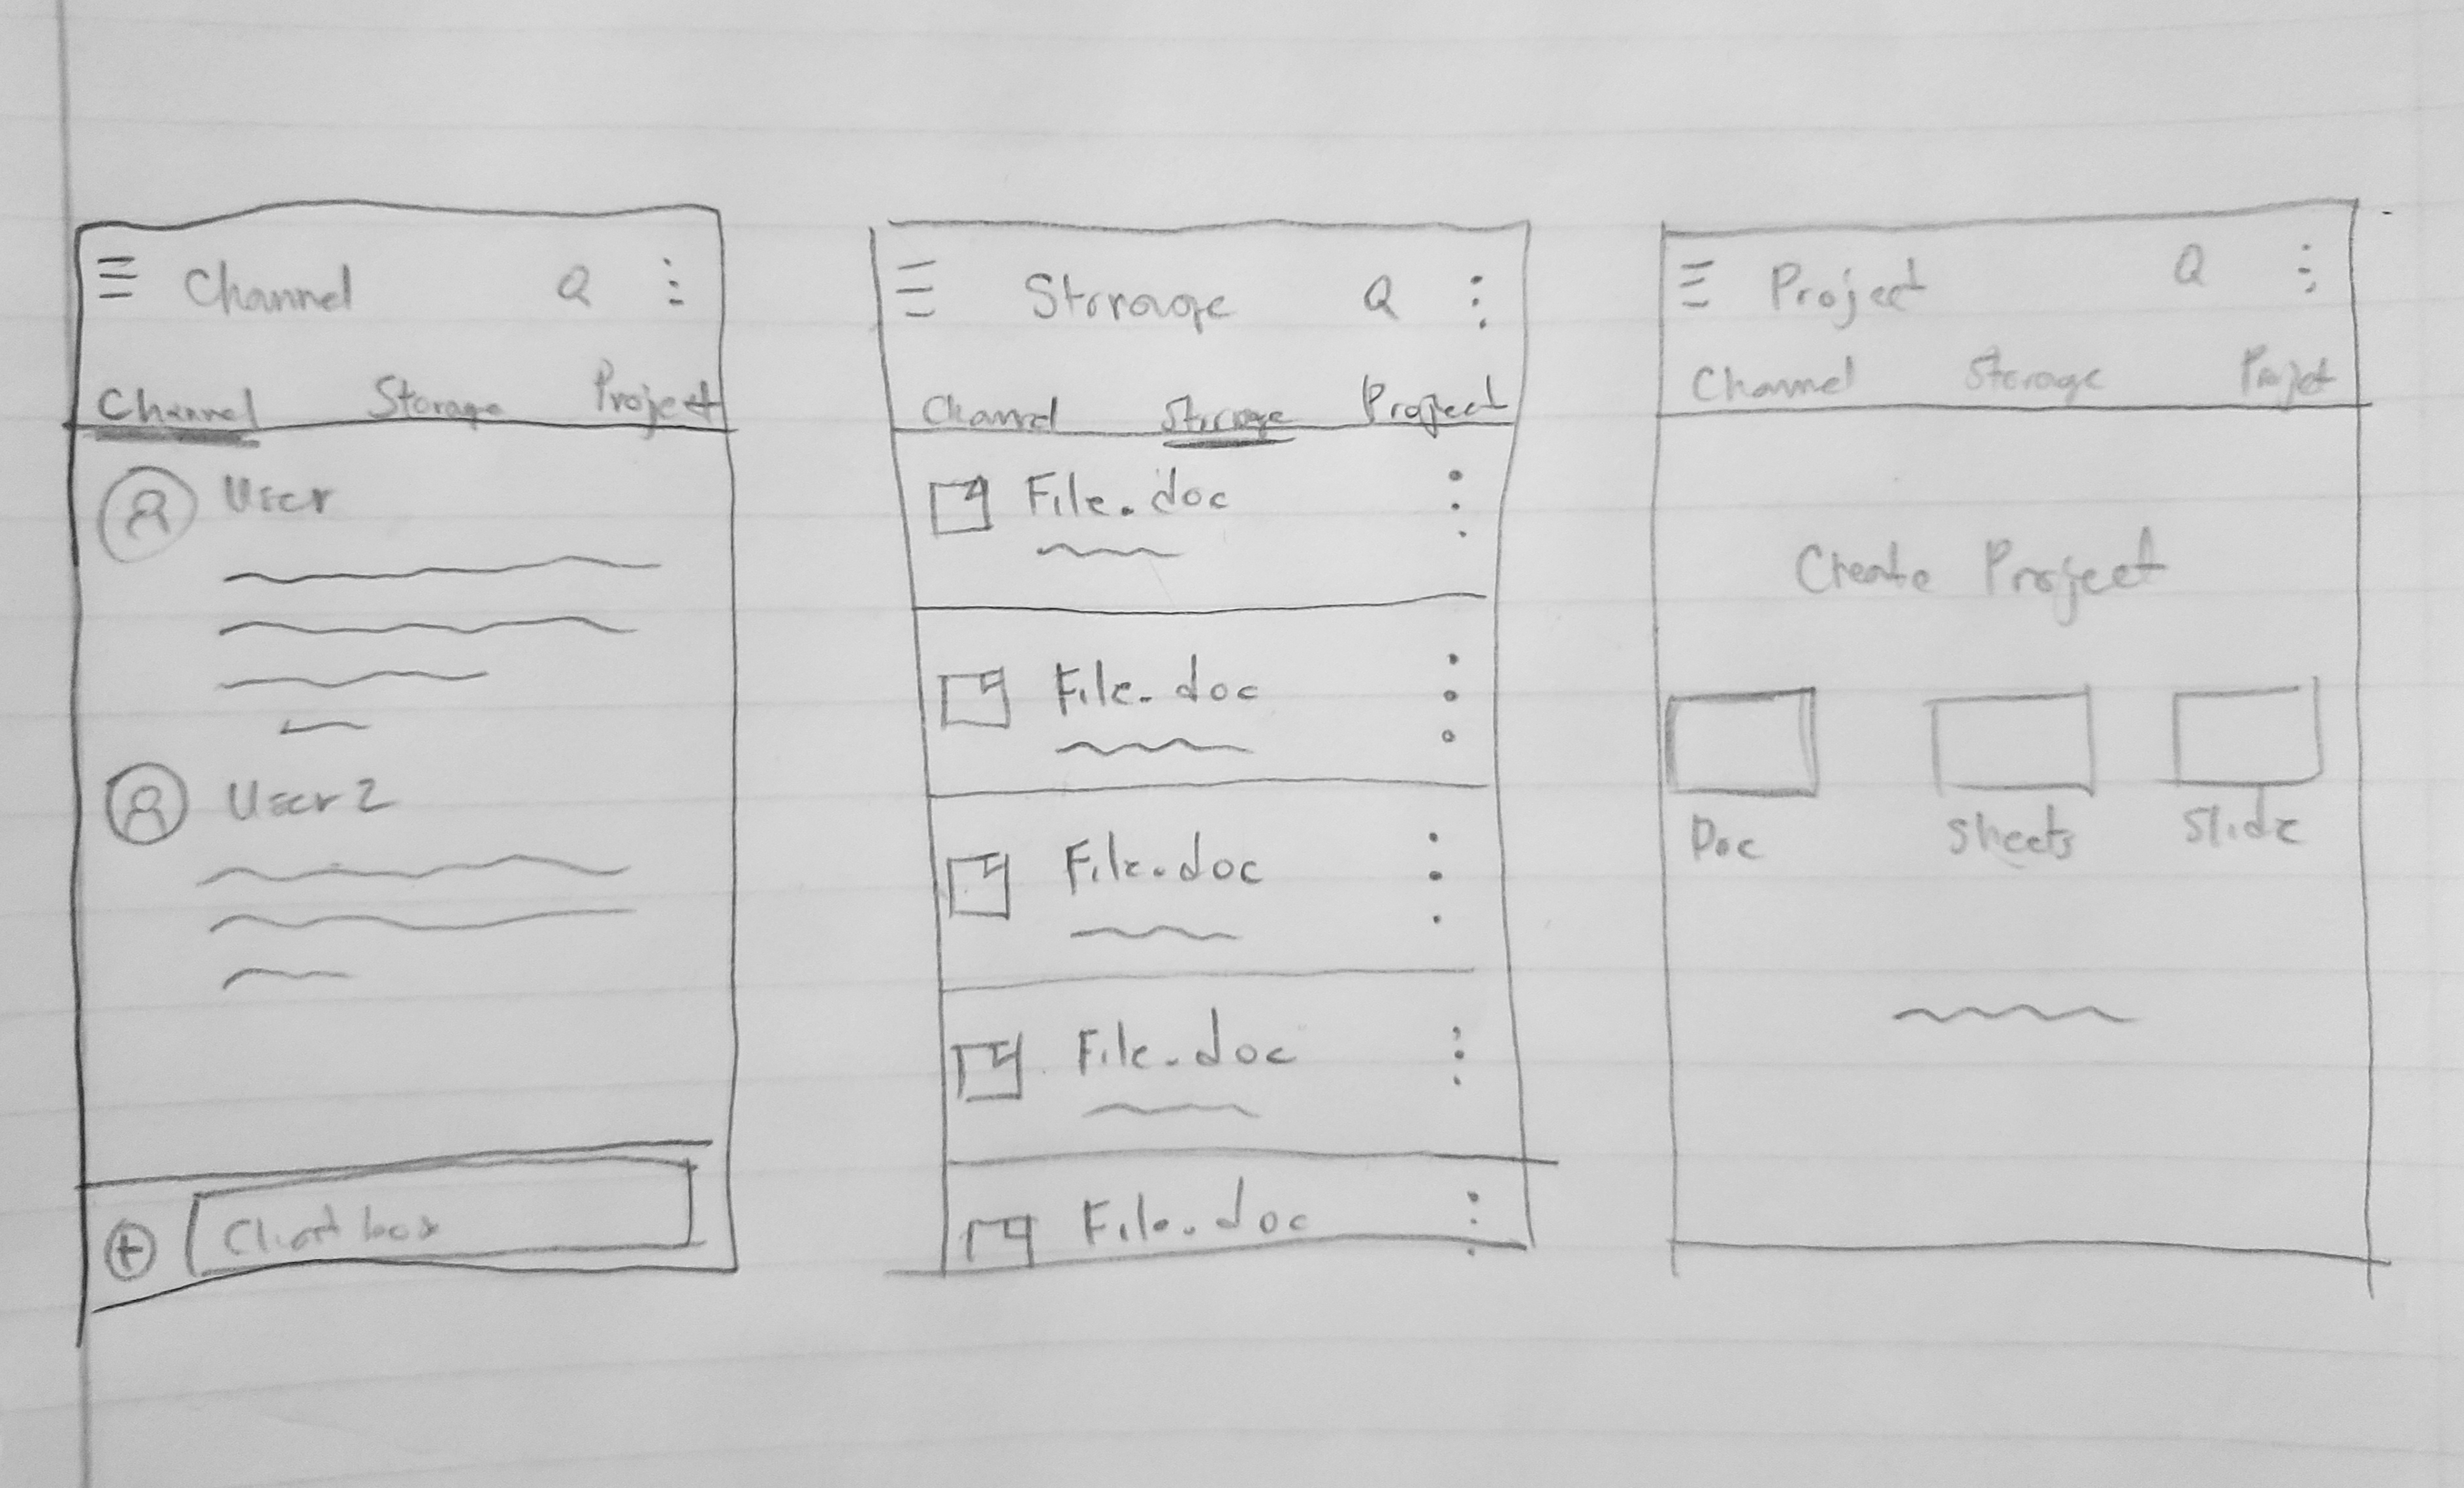 Channel
Channel Storage Project
User
User 2
Storage
Channel Storage Project
File.doc
File.doc
File.doc
File.doc
File.doc
Project
Channel Storage Projet
Create Project
Doc Sheets Slide